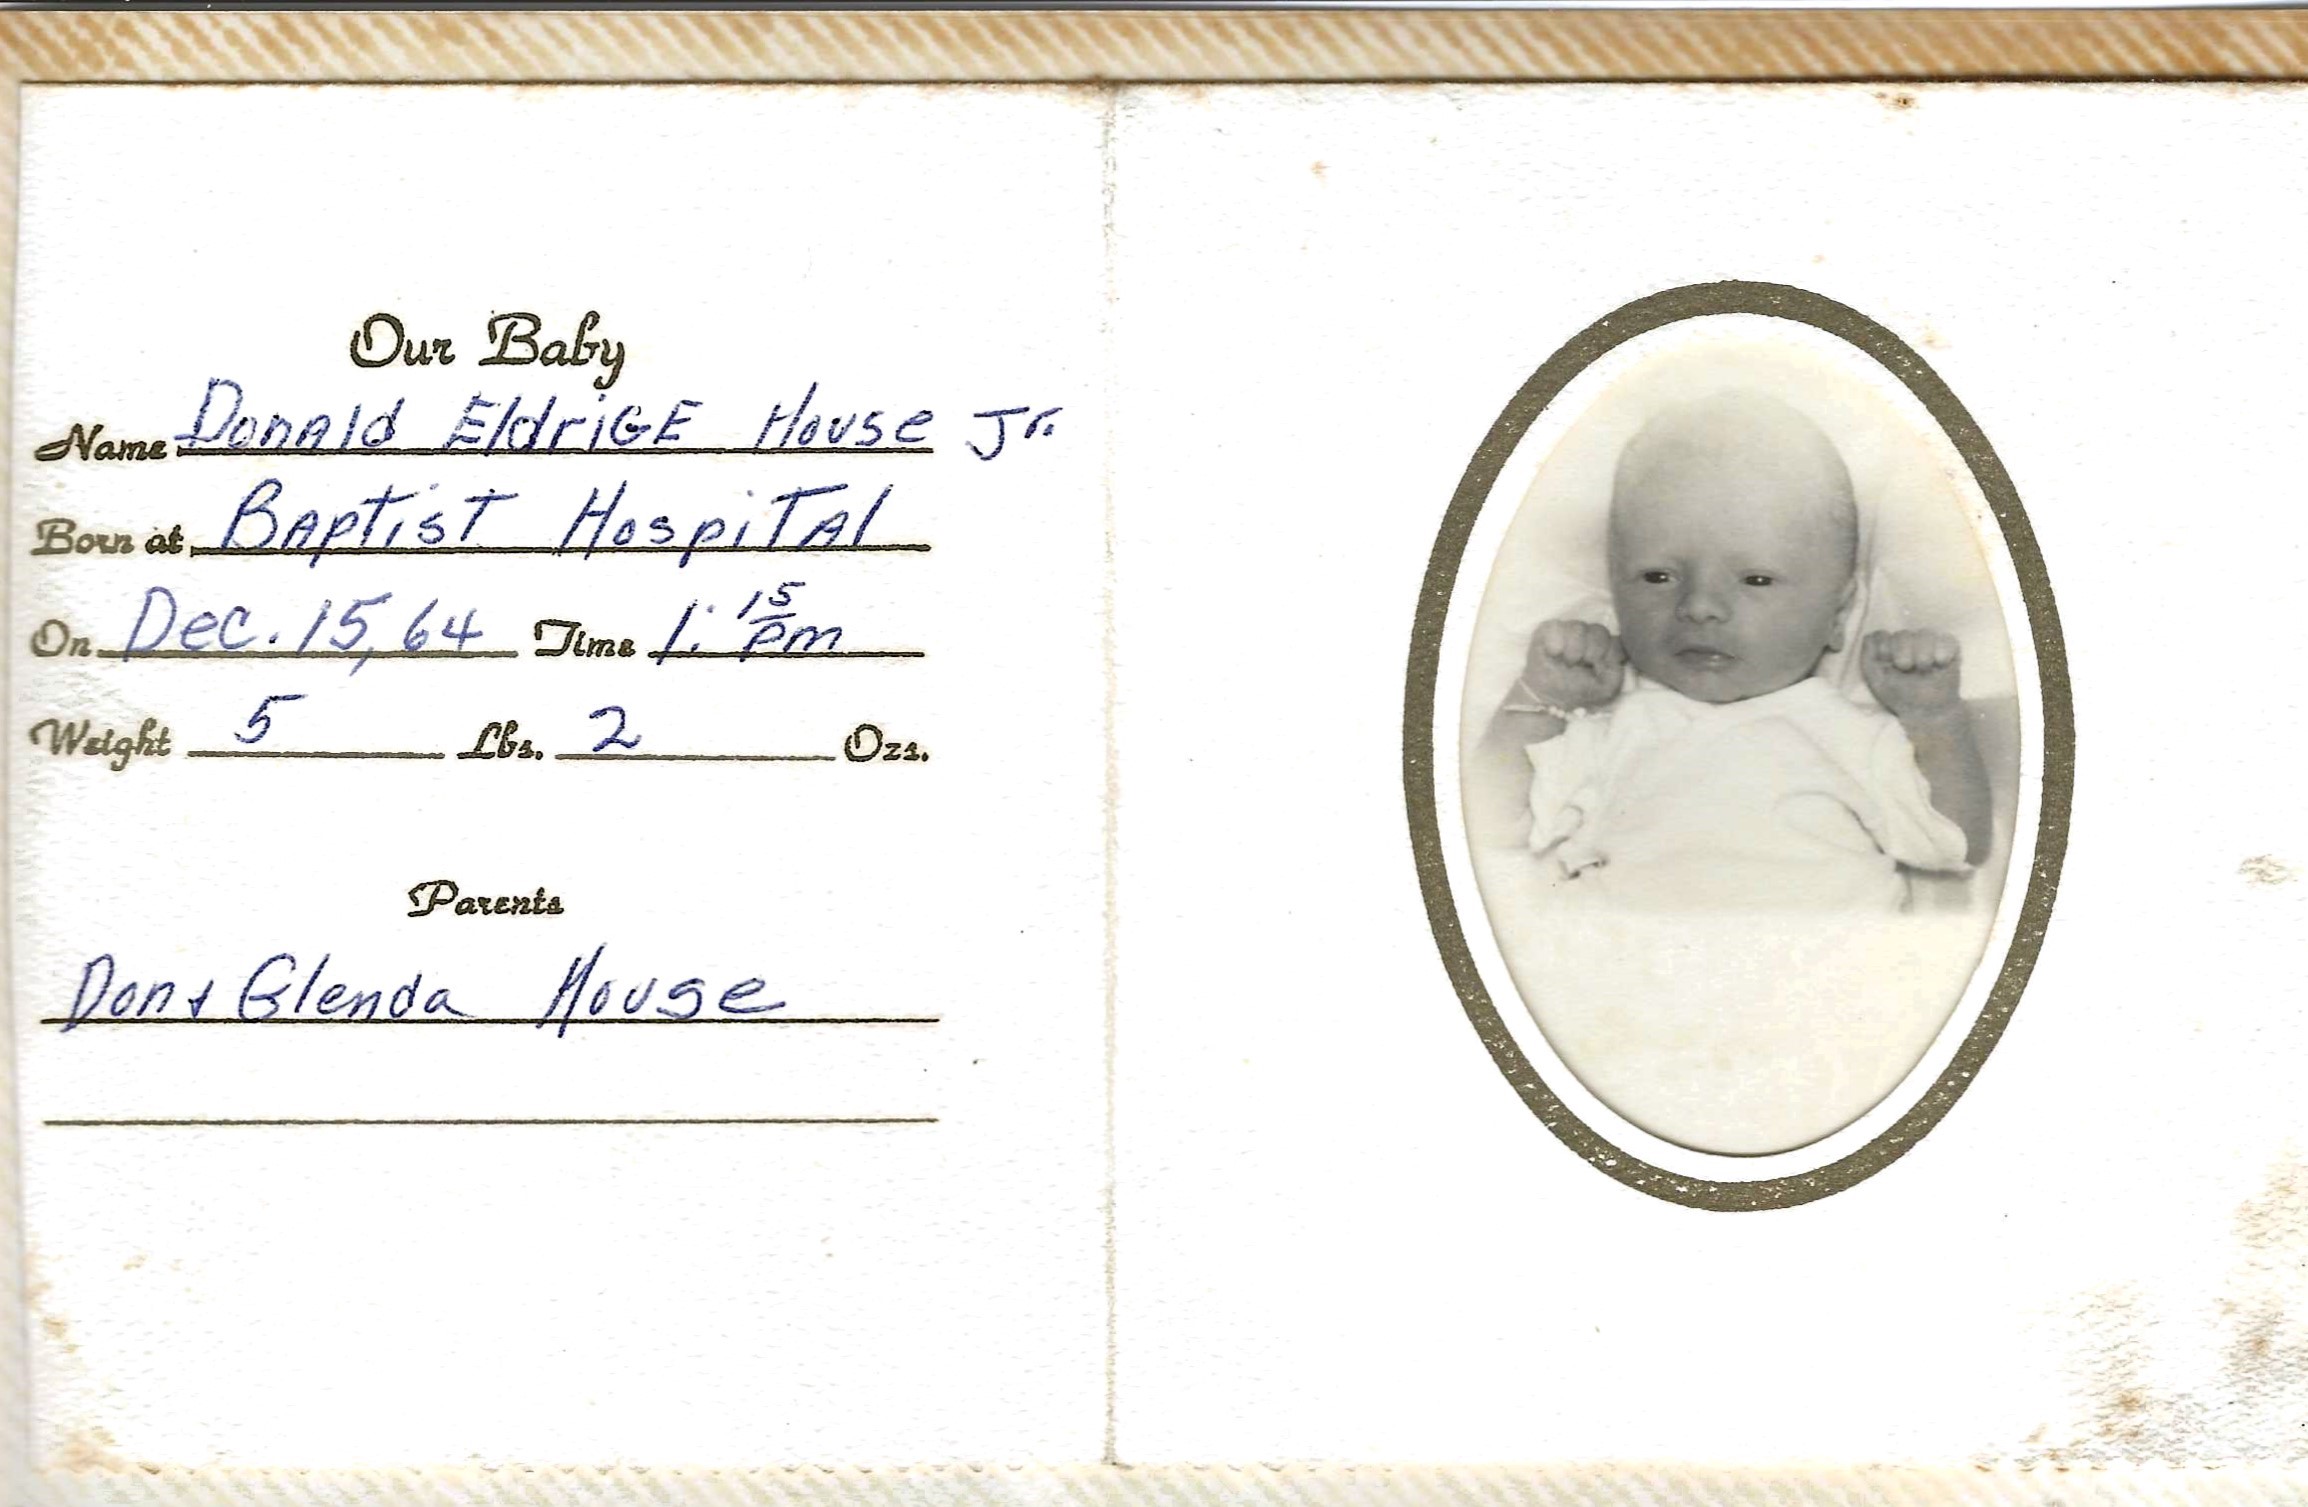 Our Baby
Name Donald EldriGE House Jr.
Born at Baptist Hospital
On Dec. 15, 64 Time 1:15 pm
Weight 5 Lbs. 2 Ozs.
Parents
Don & Glenda House